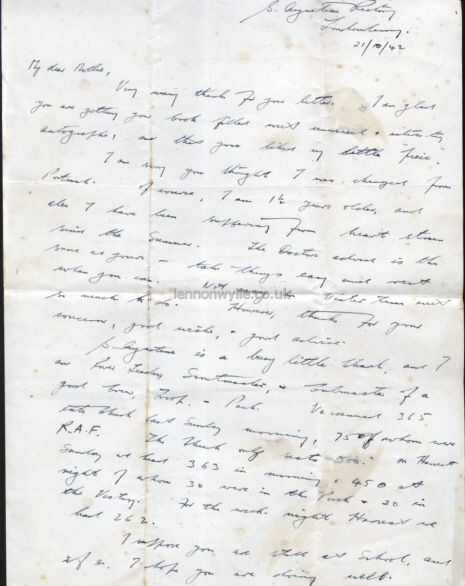 S. Augustine Rectory
Londonderry.
21/10/42
My dear Mollie,
Very many thanks for your letter. I am glad
you are getting your book filled with unusual & interesting
autographs, and that you liked my little "piece".
I am sorry you thought I was changed from
Portrush. Of course, I am 1½ years older, and
also I have been suffering from heart strain
since the Summer. The Doctor's advice is the
same as yours – take things easy and rest
when you can. Not easy in
so much to do. However, thanks for your
concern, good wishes, & good advice.
S. Augustine is a busy little Church, and I
am Rover Leader, Scoutmaster, & Cubmaster of a
good Crew, Troop, & Pack. We crammed 365
into Church last Sunday morning, 75 of whom were
R.A.F. The Church only seats 300. On Harvest
Sunday we had 363 in morning & 450 at
night of whom 30 were in the Porch & 20 in
the Vestry. For the week night Harvest we
had 262.
I suppose you are still at School, and
I hope you are doing well.
lennonwylie.co.uk